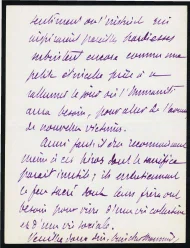 sentiment ou l'instinct qui
inspiraient pareilles hardiesses
subsistent encore comme une
petite étincelle prête à se
rallumer le jour où l'humanité
aura besoin, pour aller de l'avant
de nouvelles victimes.
Ainsi faut-il être reconnaissant
même à ces héros dont le sacrifice
paraît inutile; ils entretiennent
le feu sacré dont leurs frères ont
besoin pour vivre d'une vie collective
et d'une vie sociale.